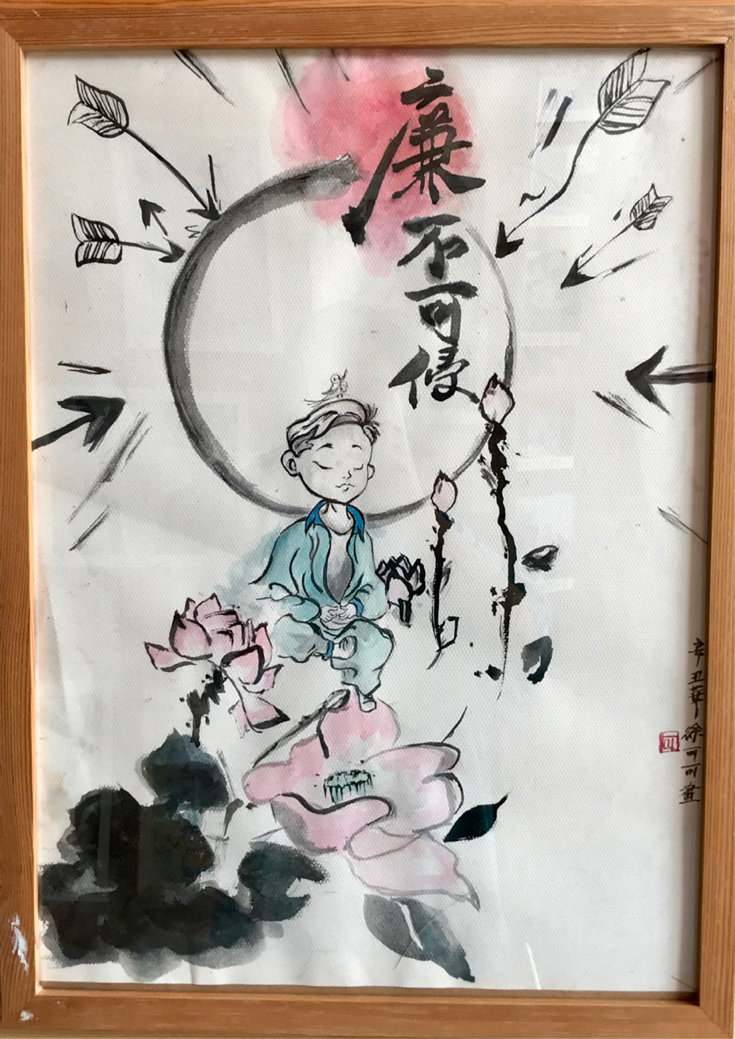 廉不可侵
辛丑年徐可可畫
可